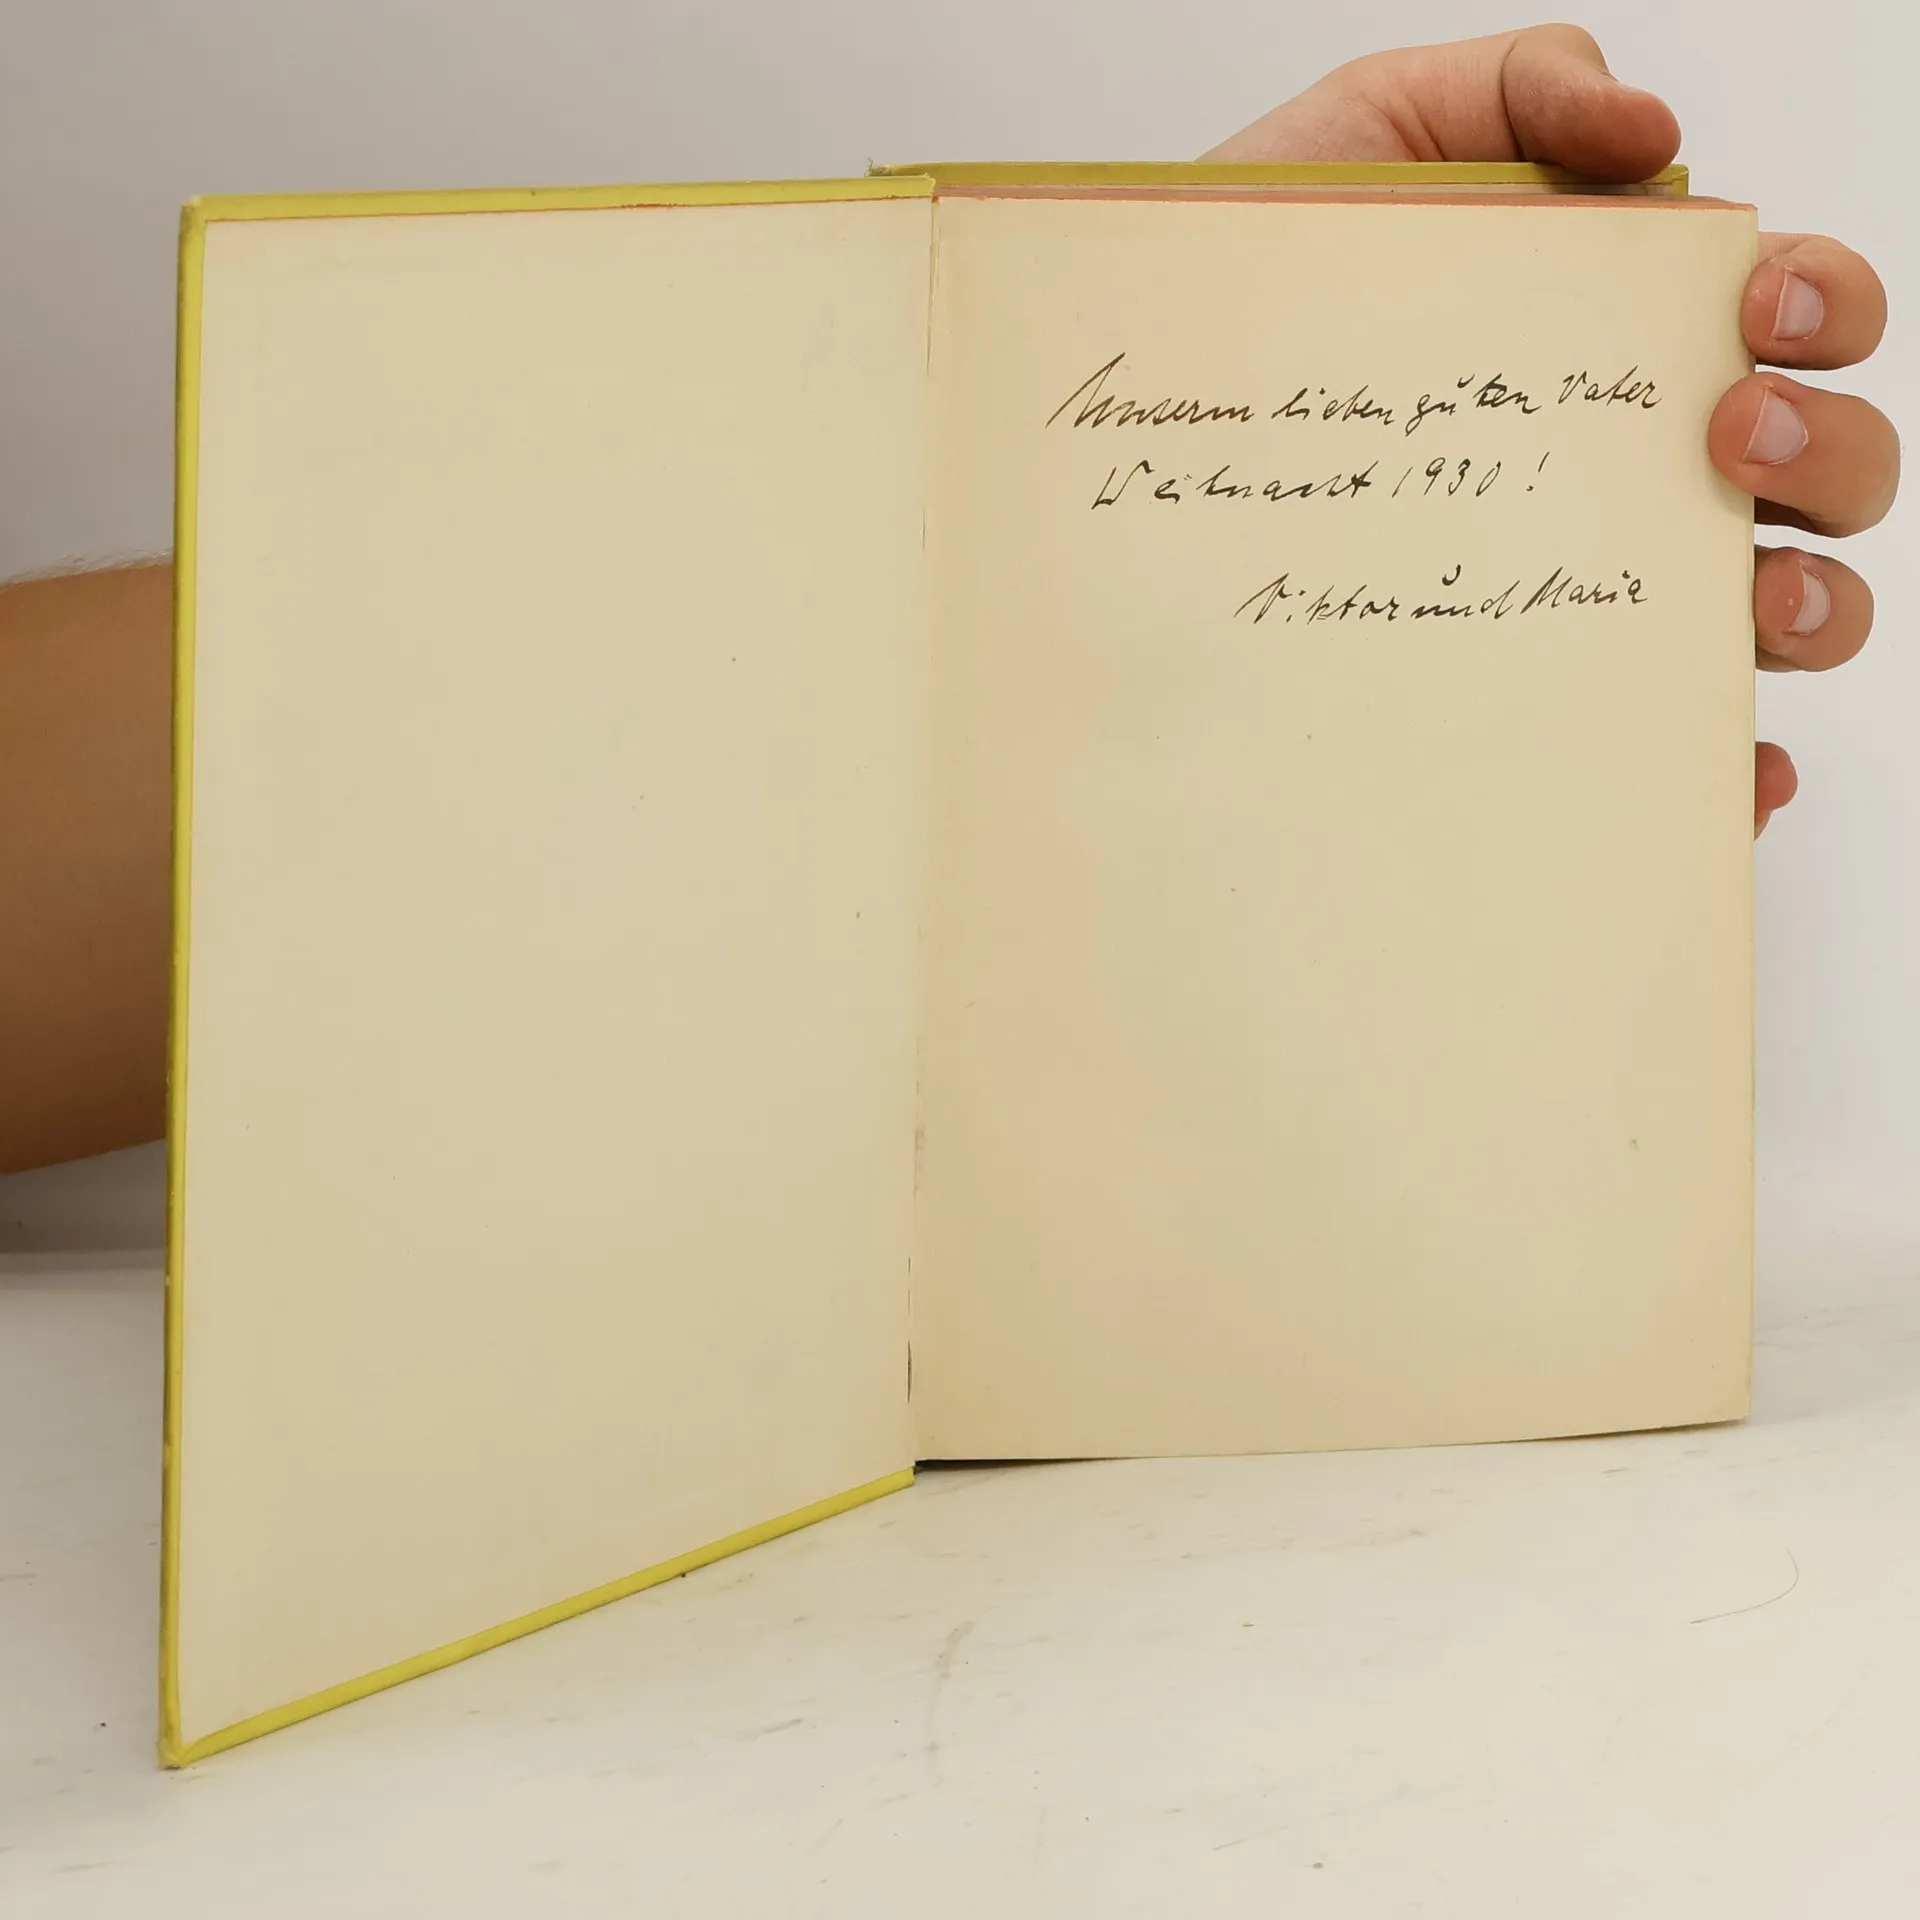 Unserm lieben guten Vater
Weihnacht 1930!
Viktor und Maria